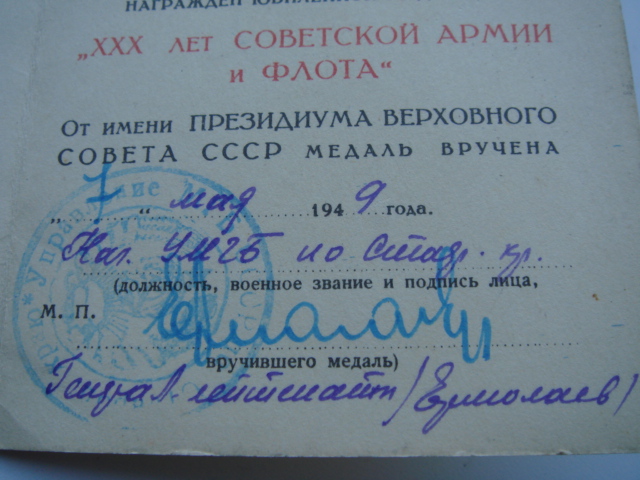 НАГРАЖДЕН ЮБИЛЕЙНОЙ
„XXX ЛЕТ СОВЕТСКОЙ АРМИИ
И ФЛОТА“
ОТ ИМЕНИ ПРЕЗИДИУМА ВЕРХОВНОГО
СОВЕТА СССР МЕДАЛЬ ВРУЧЕНА
„7“ мая 1949 года.
Нач. УМГБ по Ставр. кр.
(должность, военное звание и подпись лица,
М. П.
вручившего медаль)
Генерал-лейтенант /Ермолаев/
Управление